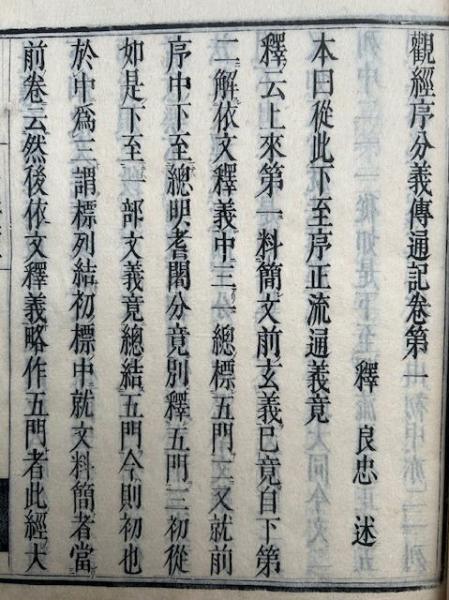 觀經序分義傳通記卷第一
釋良忠述
本曰從此下至序正流通義竟
釋云上來第一料簡文前玄義已竟自下第
二解依文釋義中三一總標五門二又就前
序中下至總明耆闍分竟別釋五門三初從
如是下至一部文義竟總結五門今則初也
於中爲三謂標列結初標中就文料簡者當
前卷云然後依文釋義略作五門者此經大